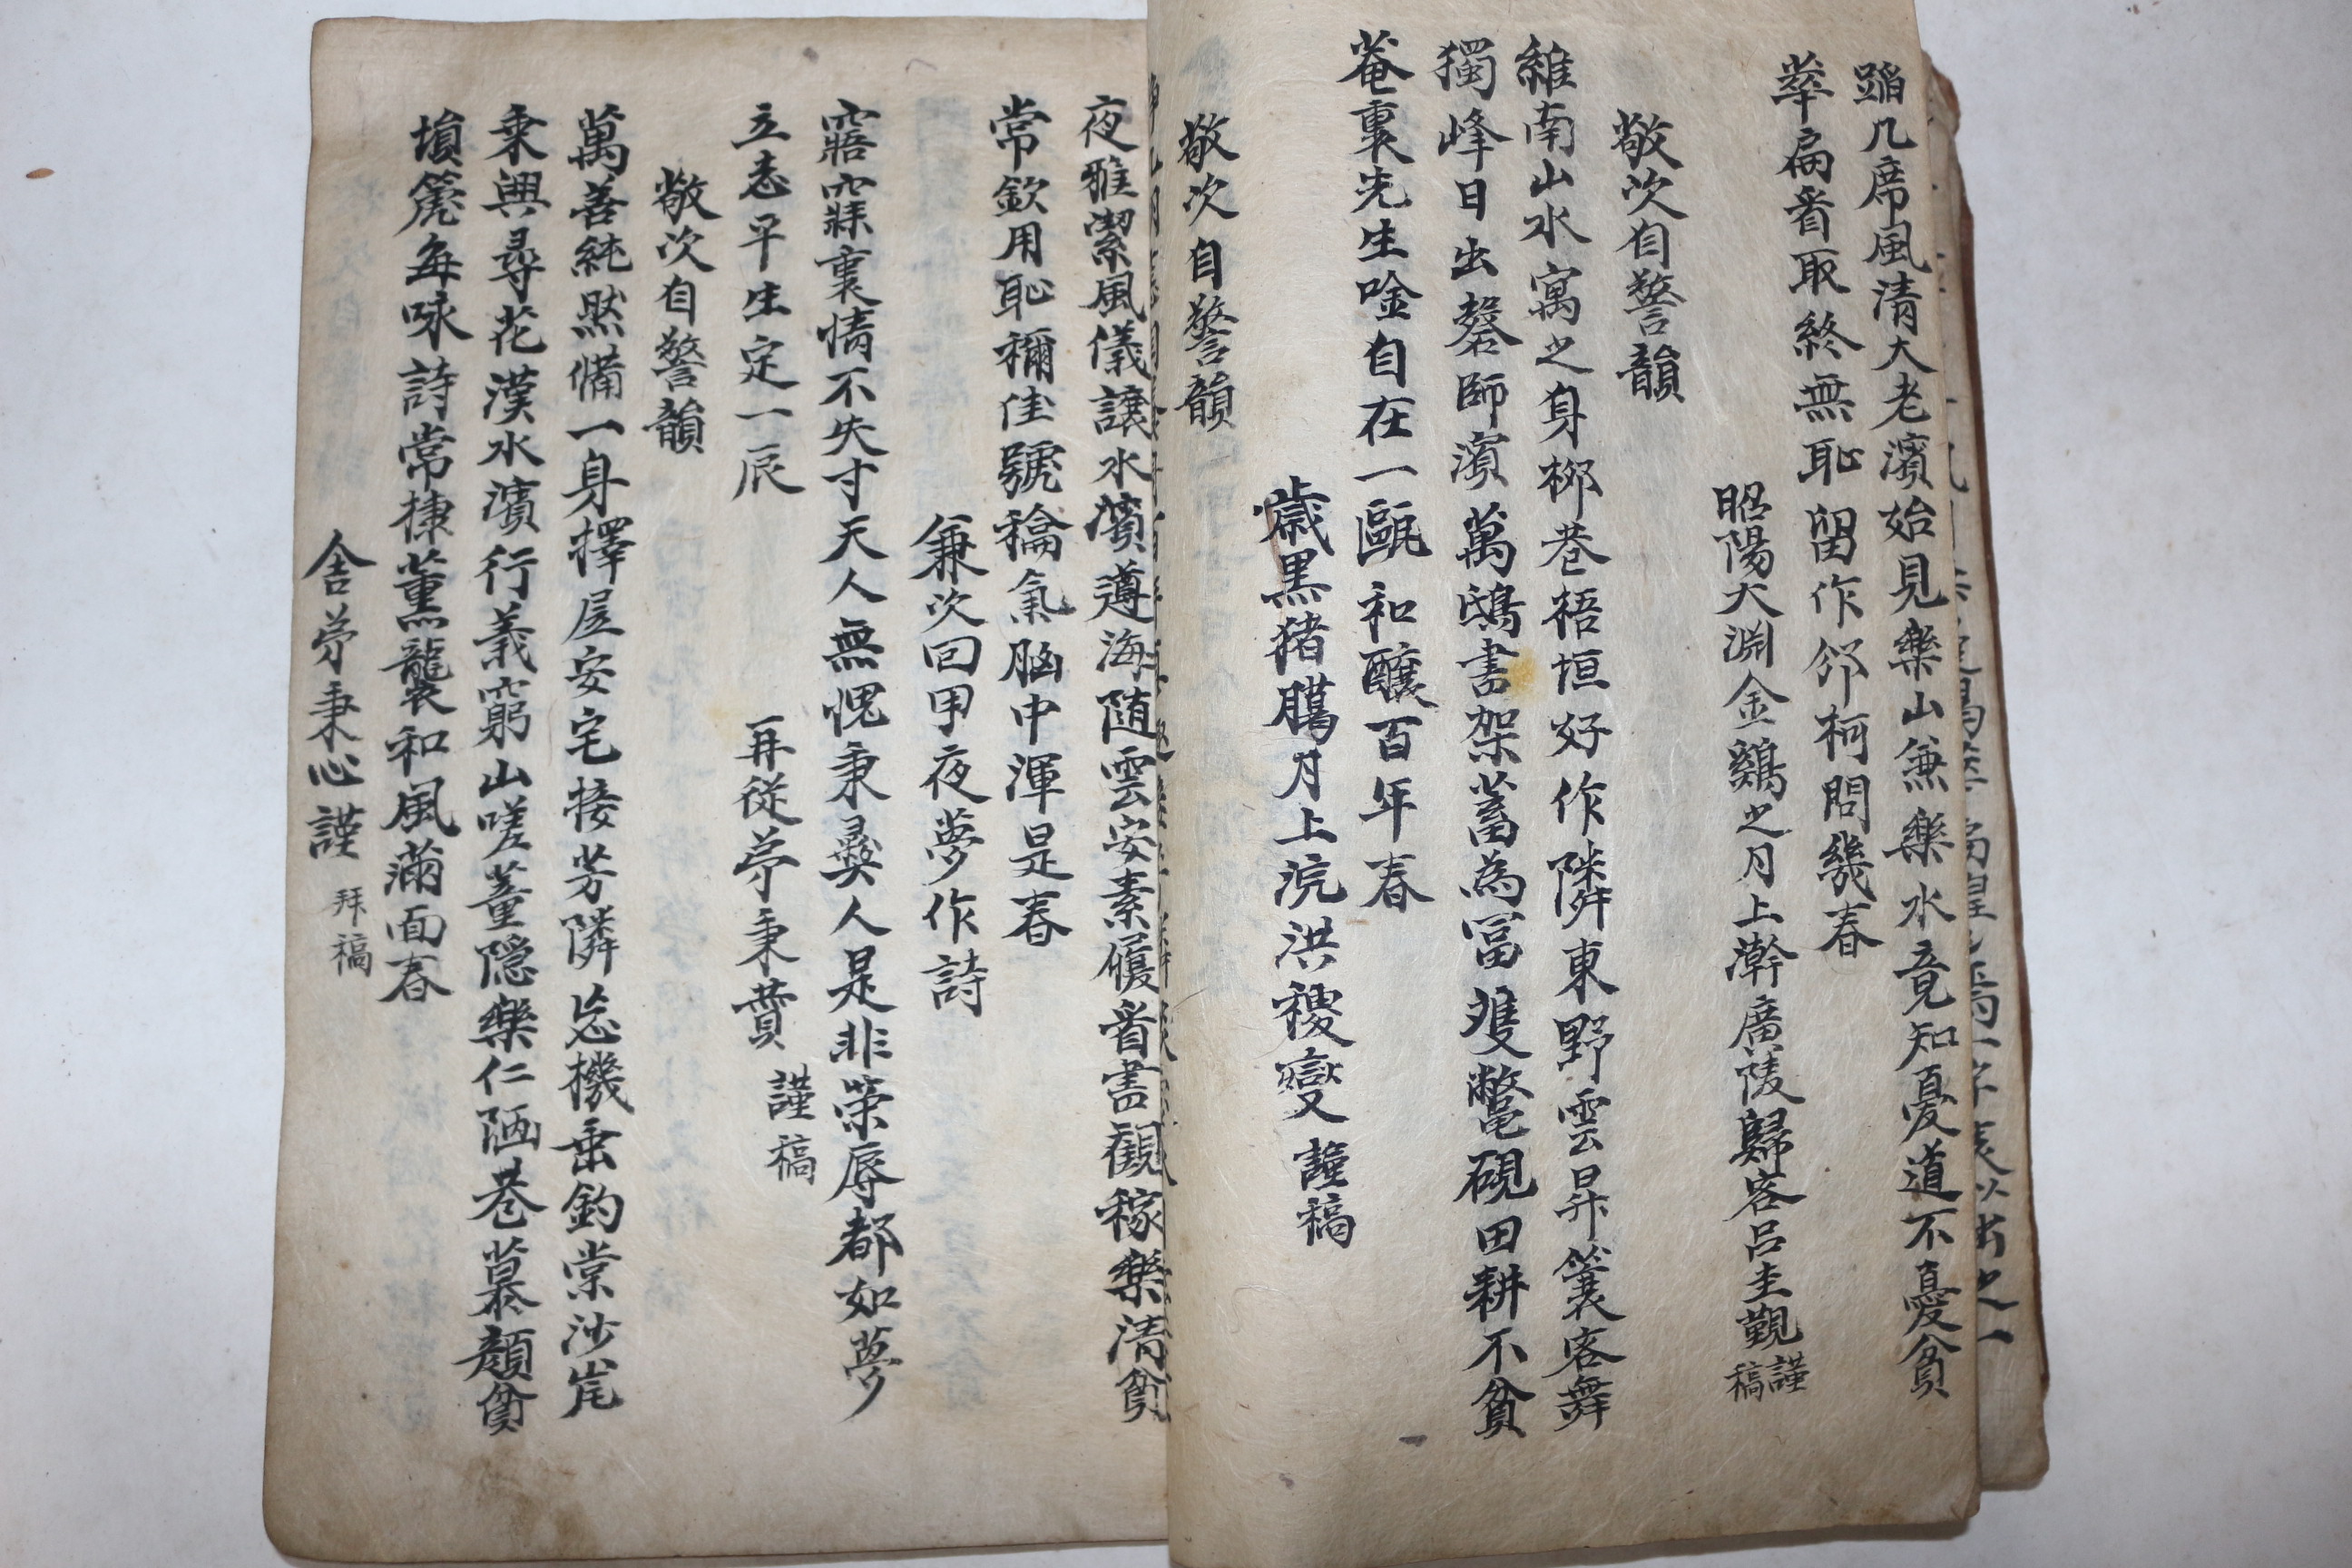 蹈几席風清大老濱始見樂山兼樂水竟知憂道不憂貧
華扁看取終無恥留作邻柯問幾春
昭陽大淵金鷄之月上澣廣陵歸客呂圭觀謹稿
敬次自警韻
維南山水寓之身柳巷梧垣好作隣東野雲昇簑客舞
獨峰日出磬師濱萬鴟書架蓄為冨隻鷩硯田耕不貧
菴裏先生唫自在一甌和釀百年春
歲黒猪臈月上浣洪稷燮謹稿
敬次自警韻
夜雅潔風儀讓水濱遵海随雲安素履看書觀稼樂清貧
常欽用恥禰佳號稐氣脳中渾是春
兼次回甲夜夢作詩
寤寐裏情不失寸天人無愧秉彛人是非榮辱都如夢
立志平生定一辰
再從苐秉賛謹稿
敬次自警韻
萬善純然備一身擇居安宅接芳隣忘機垂釣棠沙岸
乘興尋花漢水濱行義窮山嗟董隠樂仁陋巷慕顏貧
塤箎每咏詩常棣薫襲和風滿面春
舍苐秉心謹拜稿